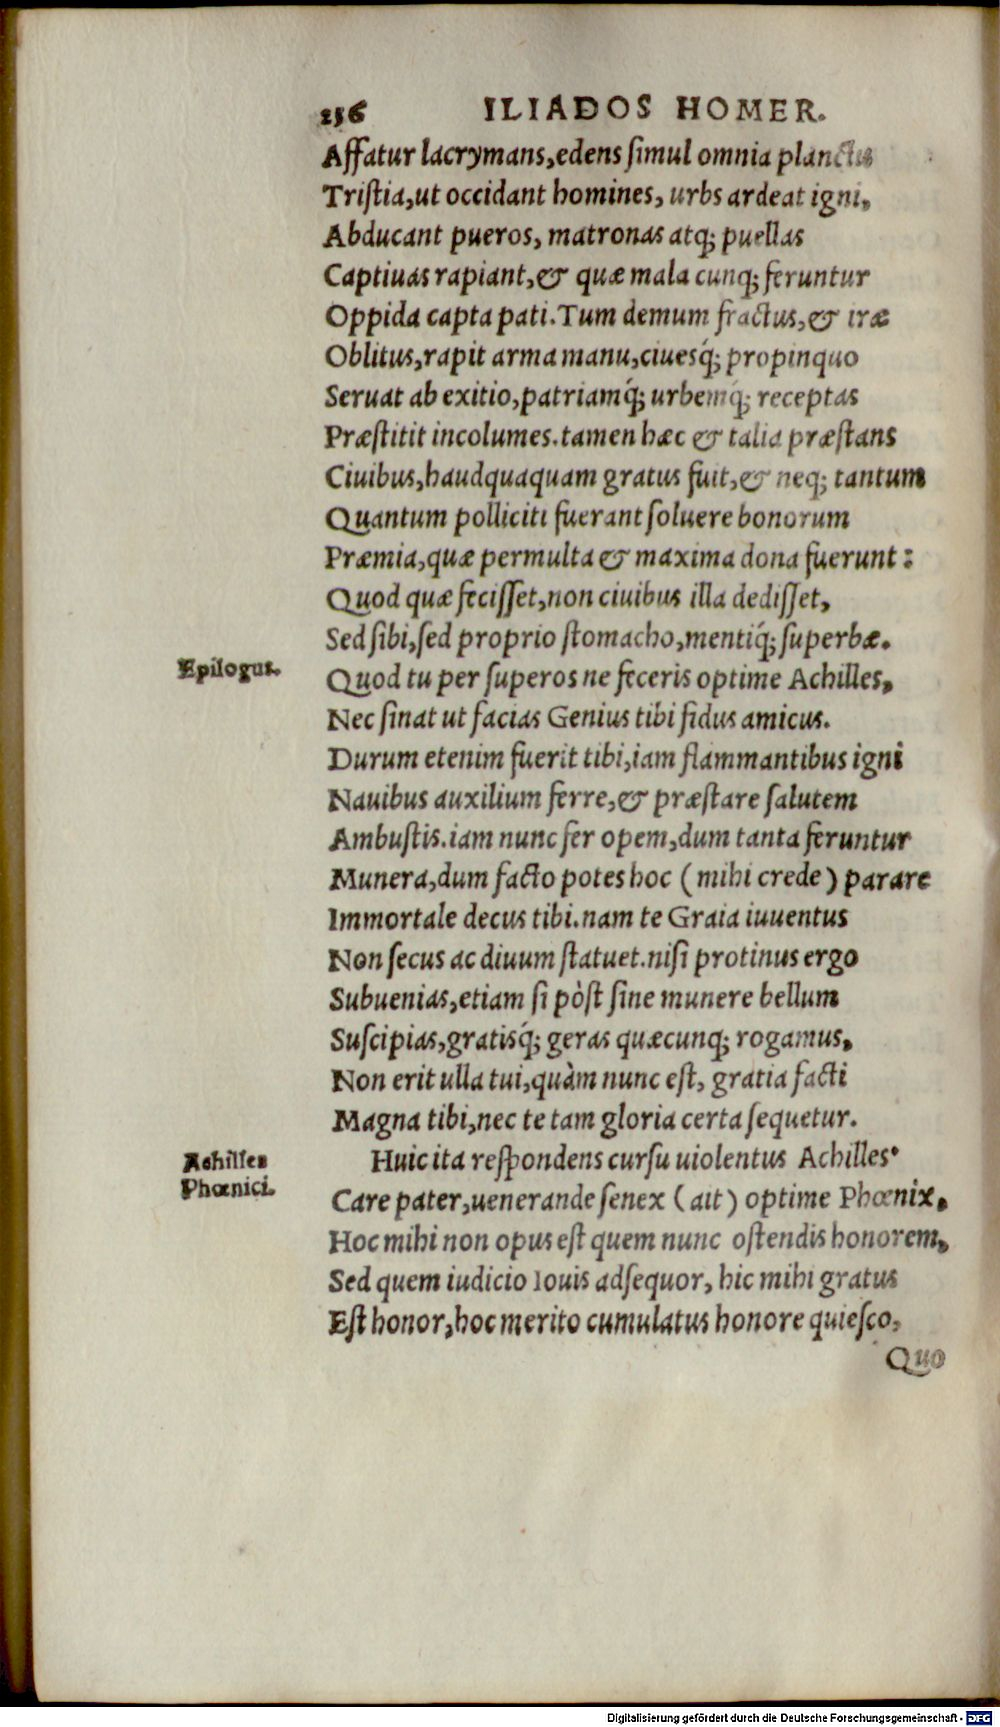 256 ILIADOS HOMER.
Affatur lacrymans, edens ſimul omnia planctu
Triſtia, ut occidant homines, urbs ardeat igni,
Abducant pueros, matronas atq; puellas
Captiuas rapiant, & quæ mala cunq; feruntur
Oppida capta pati. Tum demum fractus, & iræ
Oblitus, rapit arma manu, ciuesq́; propinquo
Seruat ab exitio, patriamq́; urbemq́; receptas
Præſtitit incolumes. tamen hæc & talia præſtans
Ciuibus, haudquaquam gratus fuit, & neq; tantum
Quantum polliciti fuerant ſoluere bonorum
Præmia, quæ permulta & maxima dona fuerunt:
Quod quæ feciſſet, non ciuibus illa dediſſet,
Sed ſibi, ſed proprio ſtomacho, mentiq́; ſuperbæ.
Epilogus.
Quod tu per ſuperos ne feceris optime Achilles,
Nec ſinat ut facias Genius tibi fidus amicus.
Durum etenim fuerit tibi, iam flammantibus igni
Nauibus auxilium ferre, & præſtare ſalutem
Ambuſtis. iam nunc fer opem, dum tanta feruntur
Munera, dum facto potes hoc (mihi crede) parare
Immortale decus tibi. nam te Graia iuuentus
Non ſecus ac diuum ſtatuet. niſi protinus ergo
Subuenias, etiam ſi pòſt ſine munere bellum
Suſcipias, gratisq́; geras quæcunq; rogamus,
Non erit ulla tui, quàm nunc eſt, gratia facti
Magna tibi, nec te tam gloria certa ſequetur.
Achilles
Phœnici.
Huic ita reſpondens curſu uiolentus Achilles.
Care pater, uenerande ſenex (ait) optime Phœnix,
Hoc mihi non opus eſt quem nunc oſtendis honorem,
Sed quem iudicio Iouis adſequor, hic mihi gratus
Eſt honor, hoc merito cumulatus honore quieſco,
Quo
Digitalisierung gefördert durch die Deutsche Forschungsgemeinschaft - DFG